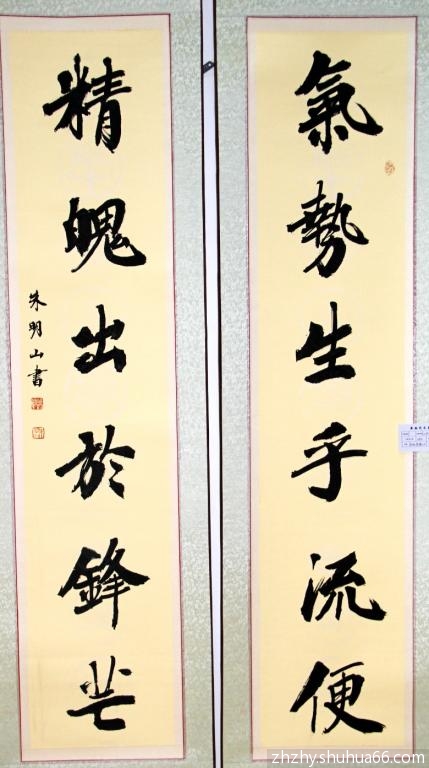 氣勢生乎流便
精魄出於鋒芒
朱明山書
zhzhy.shuhua66.com